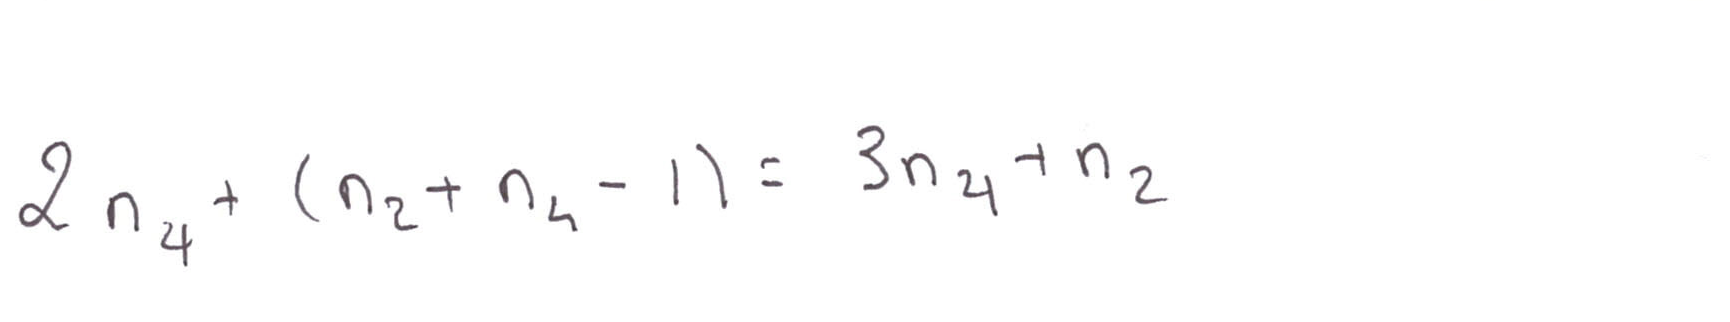 2n₄ + (n₂ + n₄ - 1) = 3n₄ + n₂